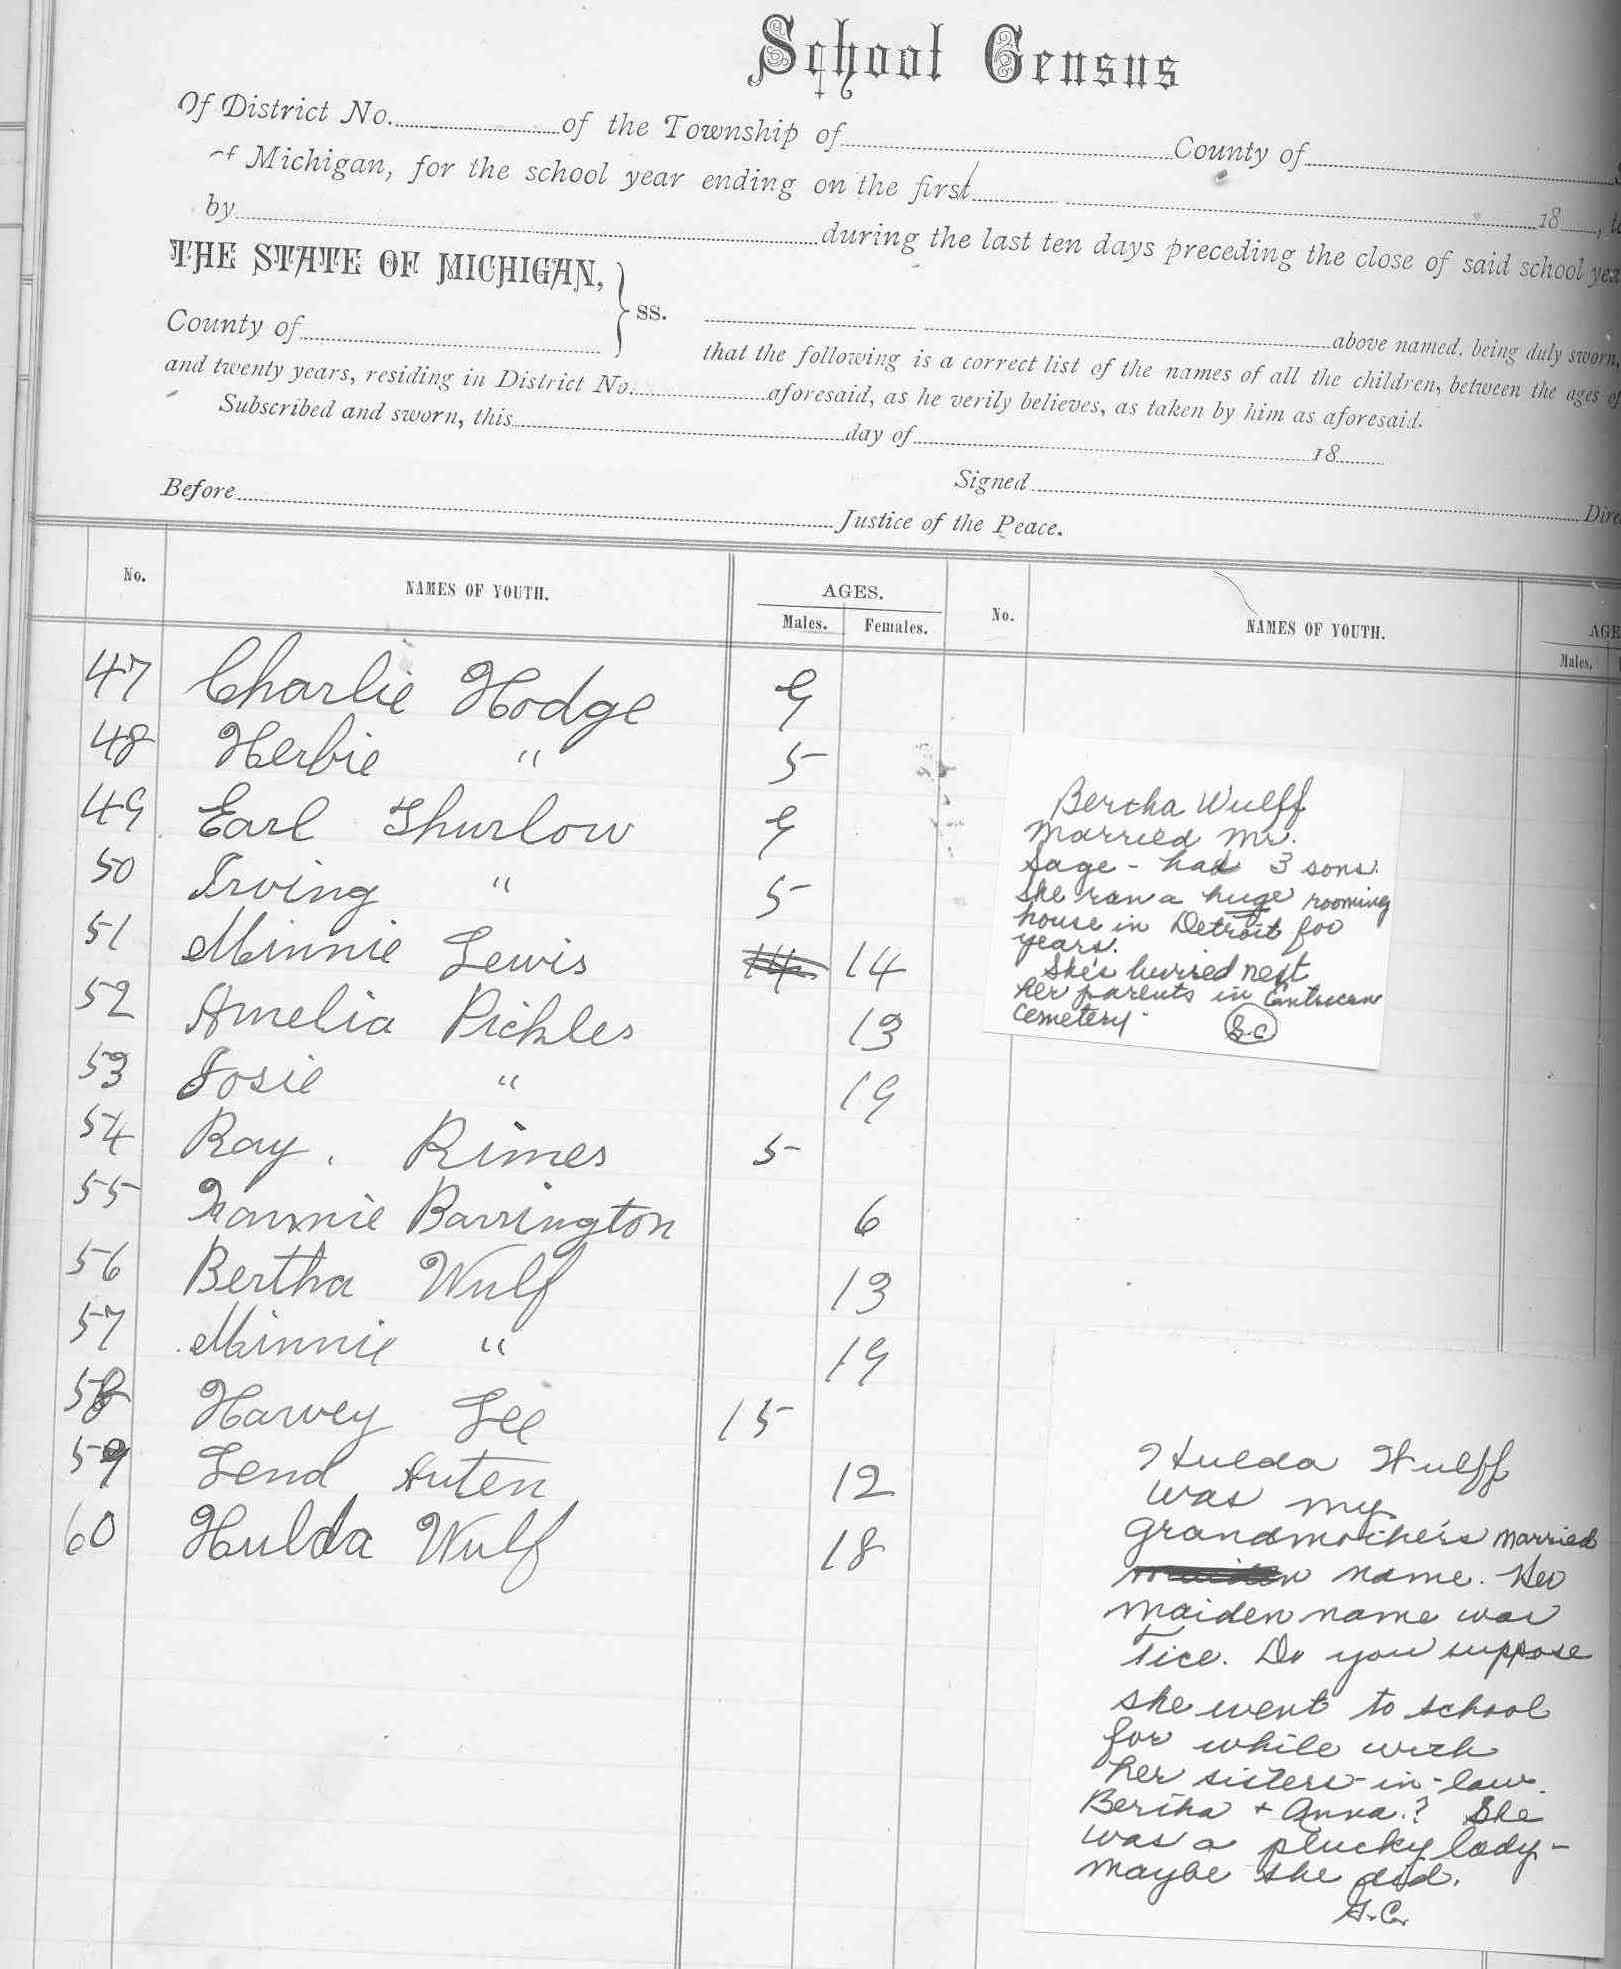 School Census
Of District No. of the Township of County of
of Michigan, for the school year ending on the first 18 ,
by during the last ten days preceding the close of said school
THE STATE OF MICHIGAN, } ss.
County of above named, being duly sworn,
that the following is a correct list of the names of all the children, between the ages of
and twenty years, residing in District No. aforesaid, as he verily believes, as taken by him as aforesaid.
Subscribed and sworn, this day of 18
Signed
Before Justice of the Peace.
No. NAMES OF YOUTH. AGES. No. NAMES OF YOUTH.
Males. Females. Males.
47 Charlie Hodge 9
48 Herbie " 5
49 Earl Thurlow 9
50 Irving " 5
51 Minnie Lewis 14 14
52 Amelia Pickles 13
53 Josie " 19
54 Ray. Rimes 5
55 Fannie Barrington 6
56 Bertha Wulf 13
57 Minnie " 19
58 Harvey Lee 15
59 Lend Auten 12
60 Hulda Wulf 18
Bertha Wulff
Married Mr.
Sage - had 3 sons.
She ran a huge rooming
house in Detroit for
years.
She's burried next
her parents in Entrican
Cemetery.
G.C
Hulda Wulff
was my
Grandmother's married
maiden name. Her
maiden name was
Tice. Do you suppose
she went to school
for while with
her sisters-in-law.
Bertha + Anna.? She
was a plucky lady -
maybe she did.
G.C.